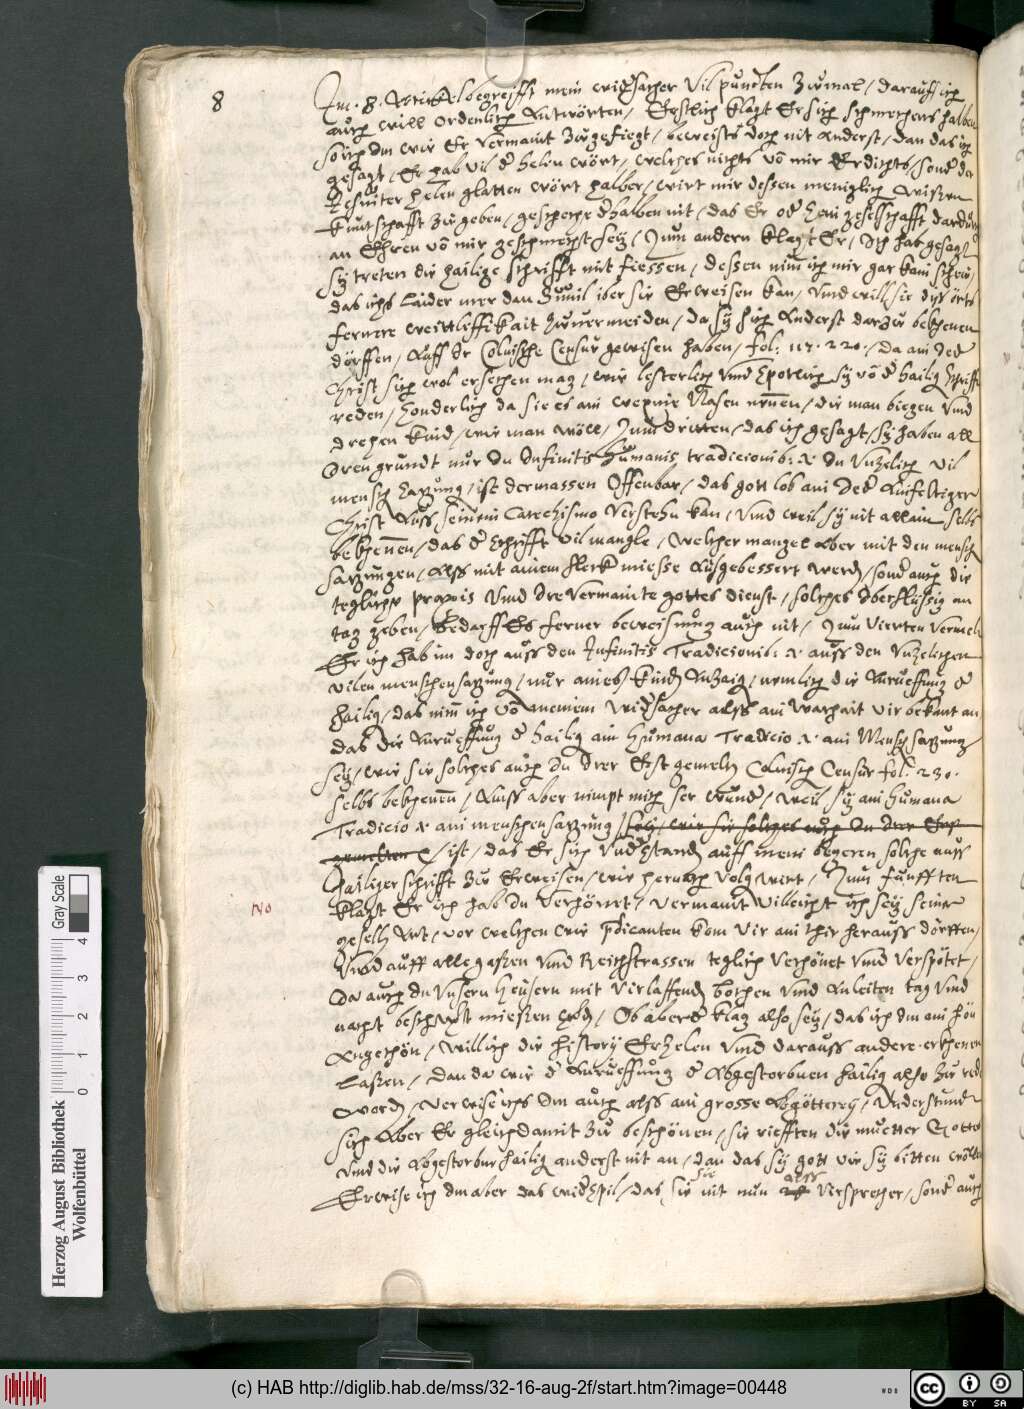 8
Im . 8 . Artickel begreifft mein widersacher vil puncten zumal / darauff ich
auch will ordenlich Antwörten / Erstlich klagt Er sich schmechens halben
so ich Im wie Er vermaint zugefiegt / beweists doch nit Anderst / dan das ich
gesagt / Er hab vil der helen wört / welches nichts von mir Erdichts / sonder der
Jesuiter helen glatten wört halber / wirt mir dessen meniglich wissen
kuntschafft zu geben / geschehe derhalben nit / das Er oder kein geselschafft dardurch
an Ehren von mir geschmecht sey / Zum andern klagt Er / Ich hab gesagt
sy treten die hailige schrifft mit fiessen / dessen nim ich mir gar kain schew /
das ichs Laider mer dan zuuil iber sie Erweisen kan / Und will sie diss orts
fernere weittleffikait zuuermeiden / da sy sich Anderst darzu bekhenen
dörffen / Auff Ir Colnische Censur gewisen haben / fol: 117. 220. / da ain Jeder
Christ sich wol ersehen mag / wie lesterlich Und spotlich sy von der hailig schrifft
reden / sonderlich da sie es ain wexine Nasen nenen / die man biegen Und
drehen kind / wie man wöll / Zum dritten / das ich gesagt / sy haben all
Iren grundt nur In Infinitis humanis tradicionib: & In Unzelich vil
mensch satzung / ist dermassen Offenbar / das gott lob ain Jeder Ainfeltiger
Christ Auss seinem Catechismo verstehn kan / Und weil sy nit allain selbs
bekhenen / das der schrifft vil mangle / welcher mangel Aber mit den mensch
satzungen / Alss mit ainem flerk miesse Aussgebessert werden / sonder auch die
teglich praxis Und Ire vermainte gottes dienst / solches Iberflissig an
tag geben / Bedarff Es ferner beweisung auch nit / Zum vierten vermelt
Er ich hab im doch auss den Infinitis Tradicionib: & auss den Unzelichen
vilen menschensatzung / nur aines kind Anzaig / nemlich die Anrueffung der
hailig / das nim ich von meinem widersacher alss ain warhait vir bekant an
das die Anrueffung der hailig ain humana Tradicio & ain Mensch satzung
sey / wie sie solches auch In Irer Erst gemelten Colnisch Censur fol: 230.
selbs bekhenen / Ainss aber nimpt mich ser wunder / weil sy ain humana
Tradicio & ain menschensatzung / sey / wie sie solches auch In Irer Erst
gemelten C / ist / das Er sich understanden auss mein begeren solche auss
hailiger schrifft zu Erweisen / wie hernach volg wirt / Zum funfften
No
klagt Er ich hab In verhönet / vermaint villeicht ich sey seiner
gesellen Art / vor welchen wir predicanten kom vir ain thir herauss dörffen /
Und auff alle gassen Und Reichstrassen teglich verhönet Und verspötet /
Ja auch In Unsern heusern mit virlaffenden bochen Und Anleiten tag Und
nacht beschwert miessen werden / Ob aber der klag also sey / das ich Im ain hön
Angethön / will ich die history Erzelen Und darauss andere erkhenen
Lassen / Dan da wir der Anrueffung der Abgestorbnen hailig also zu red
worden / verwise ichs Im auch alss ain grosse Abgötterey / Understund
sich Aber Er gleich damit zu beschönen / sie riefften die muetter Gottes
Und die Abgestorbne hailig anderst nit an / dan das sy gott vir sy bitten wölten
Erweise ich Im aber das widerspil / das sie sie nit nun alss versprecher / sonder auch
Herzog August Bibliothek
Wolfenbüttel
0 1 2 3 4
Gray Scale
(c) HAB http://diglib.hab.de/mss/32-16-aug-2f/start.htm?image=00448
WDB
cc BY SA